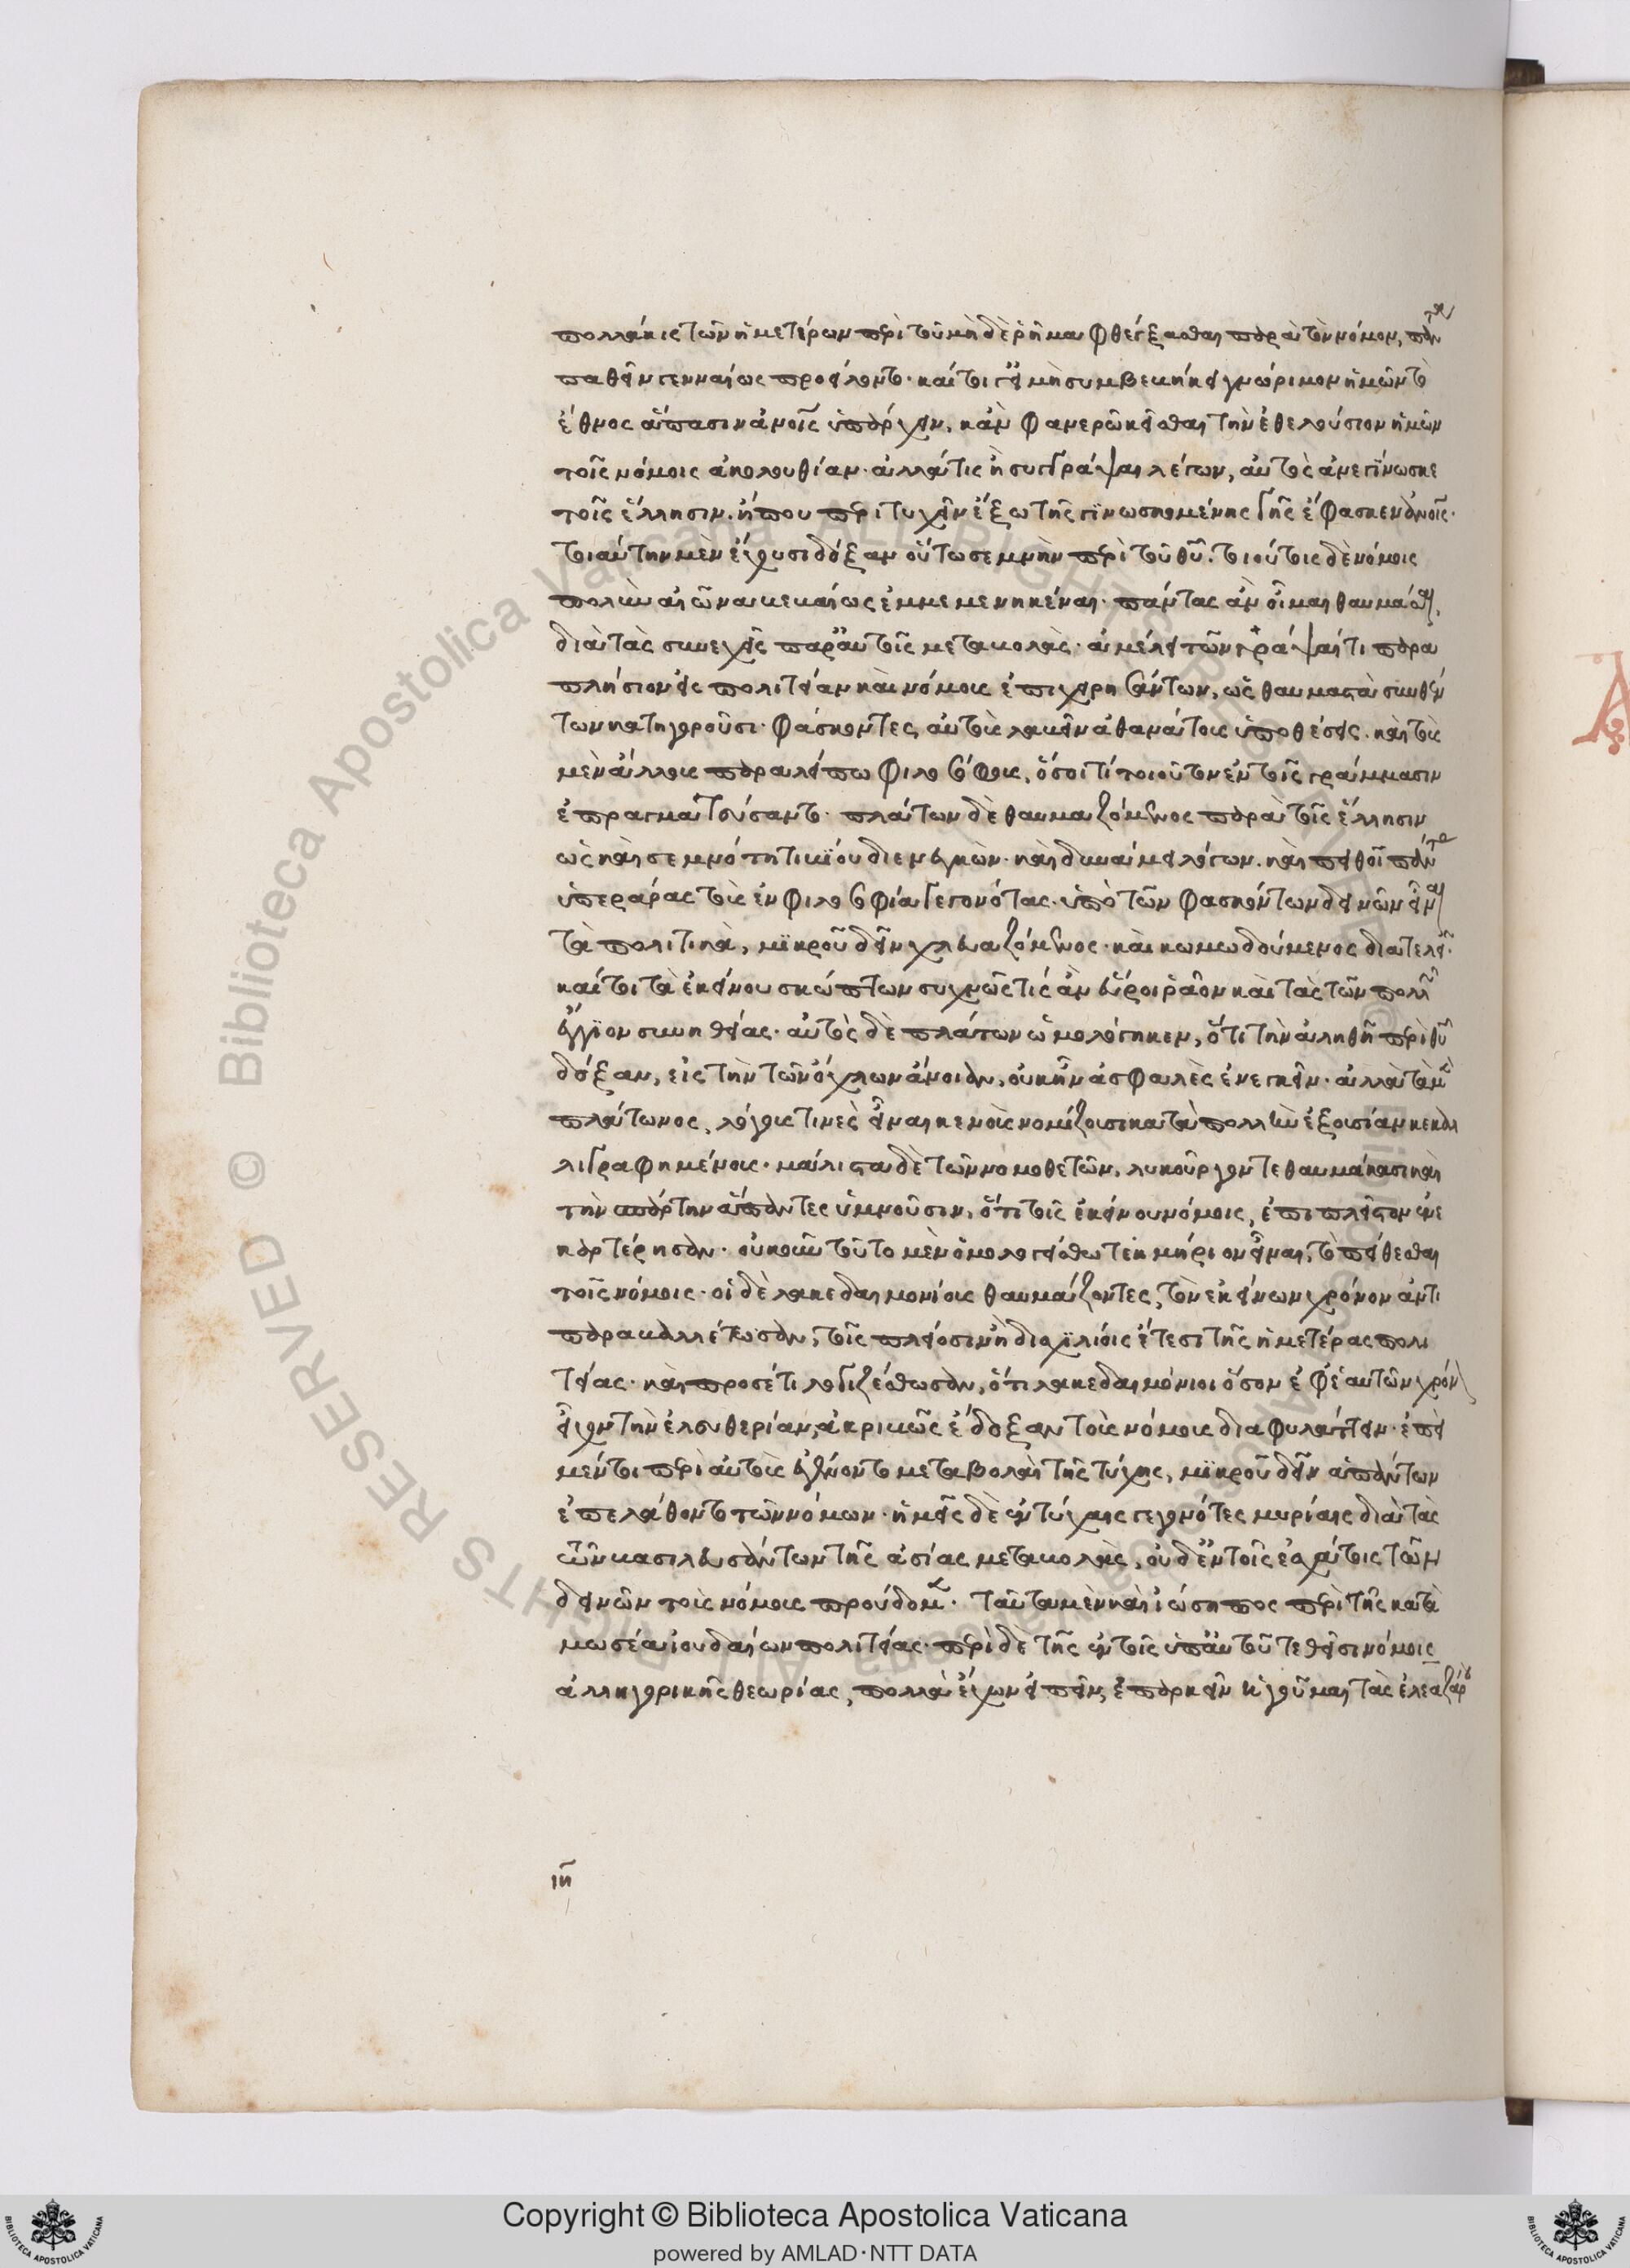 πολλάκις τῶν ἡμετέρων περὶ τοῦ μηδὲ ῥῆμα φθέγξασθαι παρὰ τὸν νόμον, πάντα
παθεῖν γενναίως προείλοντο· καίτοι γε εἰ μὴ συμβεβήκει γνώριμον ἡμῶν τὸ
ἔθνος ἅπασιν ἀνοῖς ὑπάρχειν, κἀν φανερῶ κεῖσθαι τὴν ἐθελούσιον ἡμῶν
τοῖς νόμοις ἀκολουθίαν· ἀλλά τις ἢ συγγράψαι λέγων, αὐτὸς ἀνεγίνωσκε
τοῖς ἕλλησιν. ἤπου περιτυχεῖν ἔξω τῆς γινωσκομένης γῆς ἔφασκεν ἀνοῖς·
τοιαύτην μὲν ἔχουσι δόξαν οὕτω σεμνὴν περὶ τοῦ θυ. τοιούτοις δὲ νόμοις
πολὺν αἰῶνα βεβαίως ἐμμεμενηκέναι· πάντας ἂν οἶμαι θαυμάσαι,
διὰ τὰς συνεχεῖς παρ' αὐτοῖς μεταβολάς· ἀμέλει τῶν γράψαι τι παρα
πλήσιον εἰς πολιτείαν καὶ νόμους ἐπιχειρησάντων, ὡς θαυμαστὰ συνθέν
των κατηγοροῦσι· φάσκοντες αὐτοὺς λαβεῖν ἀθανάτους ὑποθέσεις. καὶ τοὺς
μὲν ἄλλους παραλείπω φιλοσόφους, ὅσοι τί τοιοῦτον ἐν τοῖς γράμμασιν
ἐπραγματεύσαντο· πλάτων δὲ θαυμαζόμενος παρὰ τοῖς ἕλλησιν
ὡς καὶ σεμνότητι βίου διενεγκὼν· καὶ δυνάμει λόγων. καὶ πειθοῖ πάντας
ὑπεράρας τοὺς ἐν φιλοσοφία γεγονότας. ὑπὸ τῶν φασκόντων δεινῶν εἶναι
τὰ πολιτικὰ, μικροῦ δεῖν χλευαζόμενος· καὶ κωμωδούμενος διατελεῖ.
καίτοι τὰ ἐκείνου σκώπτων συχνῶς τίς ἂν εὕροι ῥᾶον καὶ τὰς τῶν πολλῶν
ἔγγιον συνηθείας· αὐτὸς δὲ πλάτων ὡμολόγηκεν, ὅτι τὴν ἀληθῆ περὶ θυ
δόξαν, εἰς τὴν τῶν ὄχλων ἄνοιαν, οὐκ ἦν ἀσφαλὲς ἐνεγκεῖν· ἀλλὰ τὰ μὲν
πλάτωνος, λόγους τινὲς εἶναι κενοὺς νομίζουσι κατὰ πολλὴν ἐξουσίαν κεκαλ
λιγραφημένους· μάλιστα δὲ τῶν νομοθετῶν, λυκοῦργον τεθαυμάκασι καὶ
τὴν σπάρτην ἅπαντες ὑμνοῦσιν, ὅτι τοῖς ἐκείνου νόμοις, ἐπὶ πλεῖστον ἐνε
καρτέρησαν. οὐκοῦν τοῦτο μὲν ὁμολογείσθω τεκμήριον εἶναι, τὸ πείθεσθαι
τοῖς νόμοις· οἱ δὲ λακεδαιμονίους θαυμάζοντες, τὸν ἐκείνων χρόνον ἀντι
παραβαλλέτωσαν, τοῖς πλείοσιν ἢ δισχιλίοις ἔτεσι τῆς ἡμετέρας πολι
τείας. καὶ προσέτι λογιζέσθωσαν, ὅτι λακεδαιμόνιοι ὅσον ἐφ' ἑαυτῶν χρόνον
εἶχον τὴν ἐλευθερίαν, ἀκριβῶς ἔδοξαν τοὺς νόμους διαφυλάττειν. ἐπεὶ
μέντοι περὶ αὐτοὺς ἐγένοντο μεταβολαὶ τῆς τύχης, μικροῦ δεῖν ἁπάντων
ἐπελάθοντο τῶν νόμων· ἡμεῖς δὲ ἐν τύχαις γεγονότες μυρίαις διὰ τὰς
τῶν βασιλευσάντων τῆς ἀσίας μεταβολὰς, οὐδ' ἐν τοῖς ἐσχάτοις τῶν
δεινῶν τοὺς νόμους προύδομεν. Ταῦτα μὲν καὶ ἰώσηπος περὶ τῆς κατὰ
μωσέα ἰουδαίων πολιτείας· περὶ δὲ τῆς ἐν τοῖς ὑπ' αὐτοῦ τεθεῖσι νόμοις
ἀλληγορικῆς θεωρίας, πολλὰ ἔχων εἰπεῖν, ἐπαρκεῖν ἡγοῦμαι τὰς ἐλεαζάρου
ιη
Copyright © Biblioteca Apostolica Vaticana
powered by AMLAD·NTT DATA